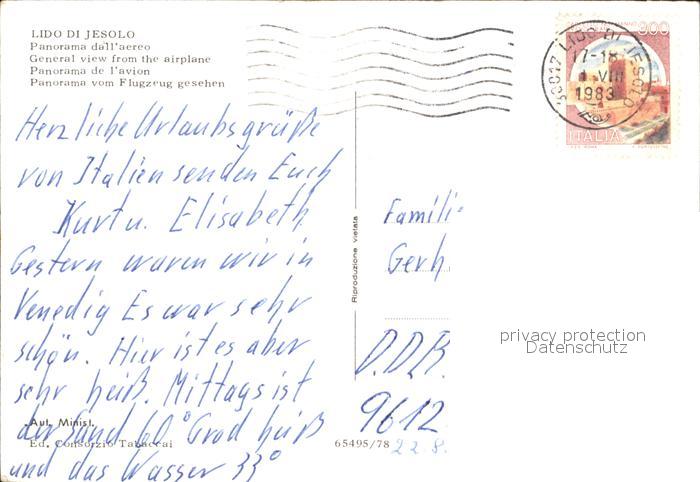 LIDO DI JESOLO
Panorama dall'aereo
General view from the airplane
Panorama de l'avion
Panorama vom Flugzeug gesehen
30017 LIDO DI JESOLO
17-18
1 VIII
1983
300
ITALIA
Herzliche Urlaubsgrüße
von Italien senden Euch
Kurt u. Elisabeth
Gestern waren wir in
Venedig Es war sehr
schön. Hier ist es aber
sehr heiß. Mittags ist
der Sand 60° Grad heiß
und das Wasser 33°
Aut. Minist.
Ed. Consorzio Tabaccai
65495/78
Riproduzione vietata
Famili
Gerh.
D.D.R.
9612
22.8.
privacy protection
Datenschutz